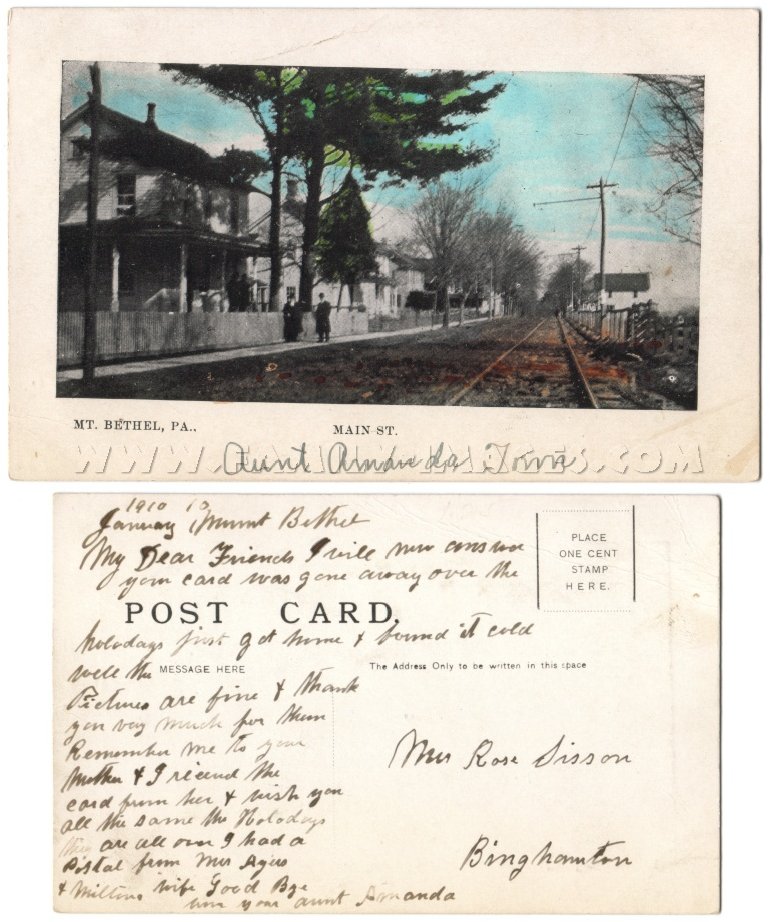 MT. BETHEL, PA.,
MAIN ST.
Aunt Amanda Town
1910 10
January Mount Bethel
My Dear Friends I will now answer
your card was gone away over the
PLACE
ONE CENT
STAMP
HERE.
POST CARD.
holodays just got home & found it cold
well the
MESSAGE HERE
The Address Only to be written in this space
Pictures are fine & thank
you very much for them
Remember me to your
Mother & I received the
card from her & wish you
all the same the Holodays
they are all over I had a
Postal from Mrs Ayers
& Miltons wife Good Bye
your aunt Amanda
Mrs Rose Sisson
Binghamton